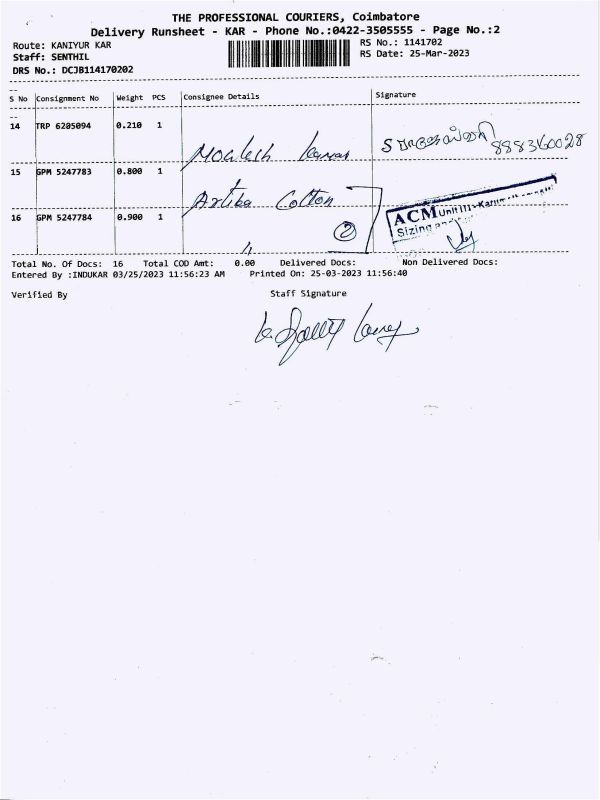 THE PROFESSIONAL COURIERS, Coimbatore
Delivery Runsheet - KAR - Phone No.:0422-3505555 - Page No.:2
Route: KANIYUR KAR
RS No.: 1141702
Staff: SENTHIL
RS Date: 25-Mar-2023
DRS No.: DCJB114170202
S No Consignment No Weight PCS Consignee Details Signature
14 TRP 6205094 0.210 1
888360028
15 GPM 5247783 0.800 1
Cotton
16 GPM 5247784 0.900 1
2
ACM Unit III
Sizing
Total No. Of Docs: 16 Total COD Amt: 0.00 Delivered Docs: Non Delivered Docs:
Entered By :INDUKAR 03/25/2023 11:56:23 AM Printed On: 25-03-2023 11:56:40
Verified By Staff Signature